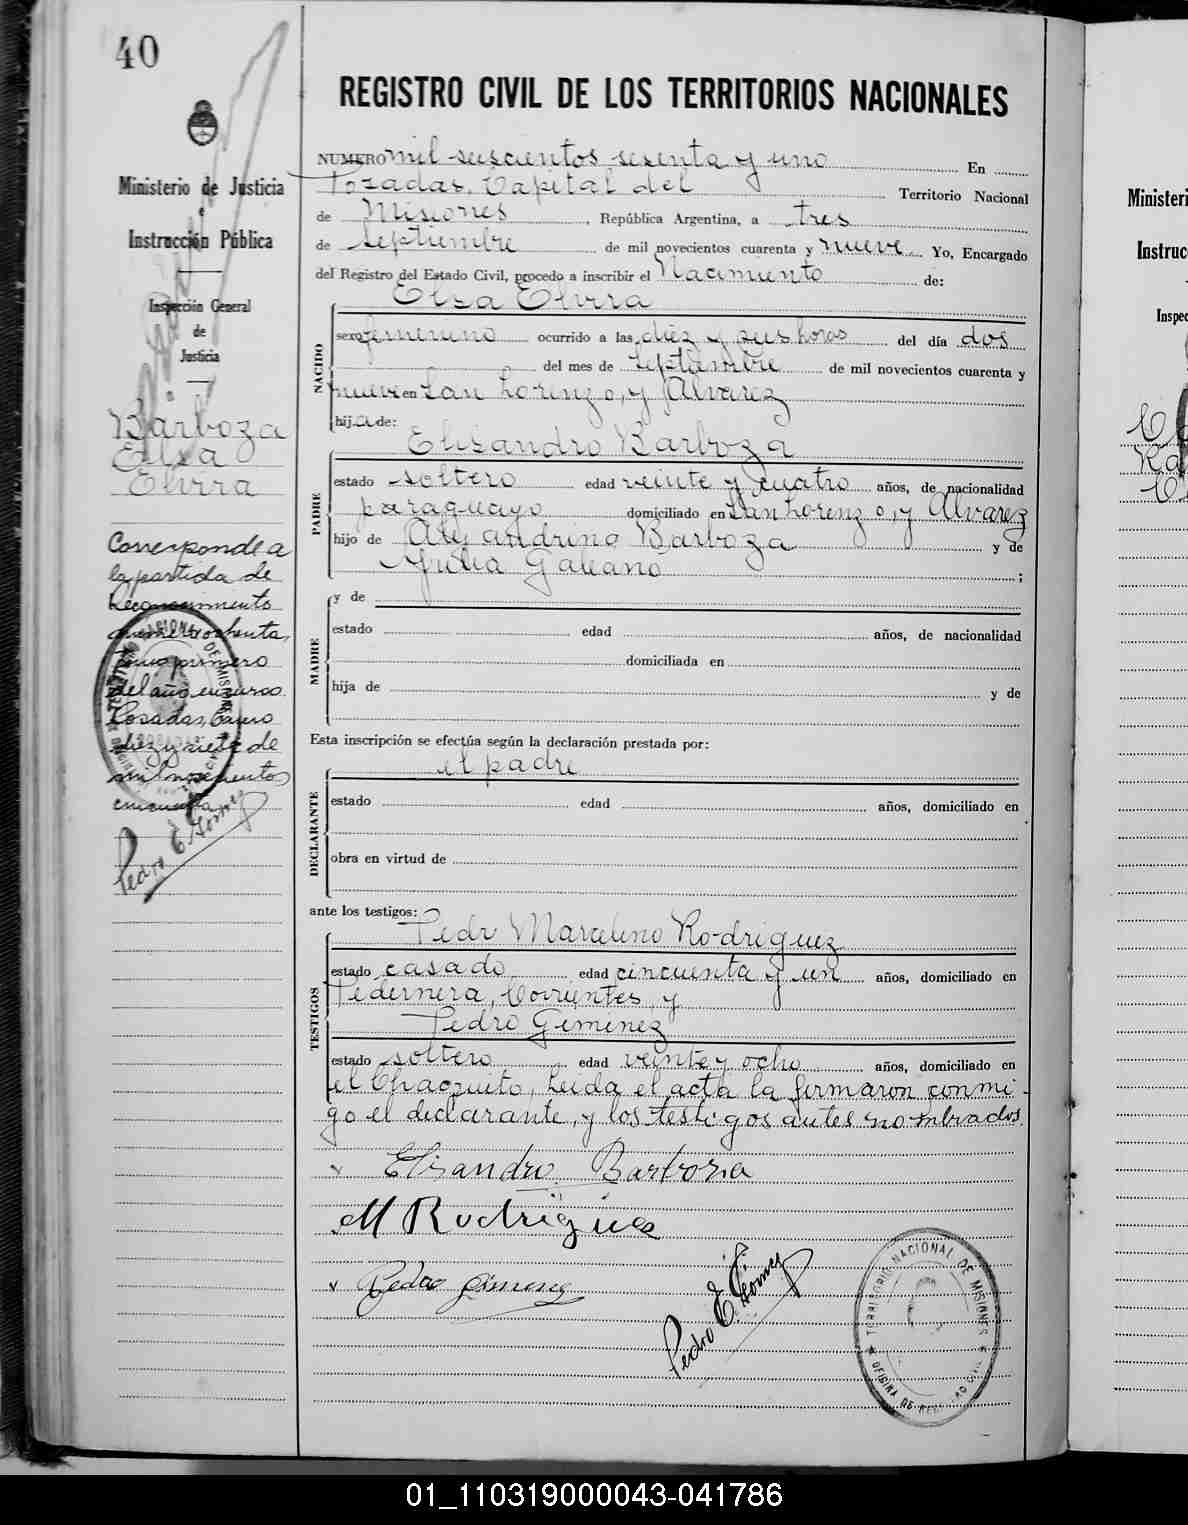 40
Ministerio de Justicia
e
Instrucción Pública
Inspección General
de
Justicia
Barboza
Elsa
Elvira
Corresponde a
la partida de
Reconocimiento
numero ochenta,
tomo primero
del año en curso.
Posadas, Enero
diez y siete de
mil novecientos
cincuenta
Pedro E. Gómez
REGISTRO CIVIL DE LOS TERRITORIOS NACIONALES
NUMERO mil seiscientos sesenta y uno En
Posadas, Capital del Territorio Nacional
de Misiones, República Argentina, a tres
de septiembre de mil novecientos cuarenta y nueve Yo, Encargado
del Registro del Estado Civil, procedo a inscribir el Nacimiento de:
Elsa Elvira
NACIDO
sexo femenino ocurrido a las diez y seis horas del día dos
del mes de septiembre de mil novecientos cuarenta y
nueve en San Lorenzo, y Alvarez
hij.a de:
Elisandro Barboza
PADRE
estado soltero edad veinte y cuatro años, de nacionalidad
paraguayo domiciliado en San Lorenzo, y Alvarez
hijo de Alejandrino Barboza y de
Julia Galeano ;
y de
MADRE
estado edad años, de nacionalidad
domiciliada en
hija de y de
Esta inscripción se efectúa según la declaración prestada por:
el padre
DECLARANTE
estado edad años, domiciliado en
obra en virtud de
ante los testigos:
Pedr Marcelino Rodriguez
TESTIGOS
estado casado edad cincuenta y un años, domiciliado en
Pedernera, Corrientes, y
Pedro Gimenez
estado soltero edad veinte y ocho años, domiciliado en
el Chaquito, Leida el acta la firmaron conmi-
go el declarante, y los testigos antes nombrados.
Elisandro Barboza
M Rodriguez
Pedro Gimenez
Pedro E. Gómez
TERRITORIO NACIONAL DE MISIONES
OFICINA DE REGISTRO CIVIL
Ministeri
Instrucc
Inspec
01_110319000043-041786